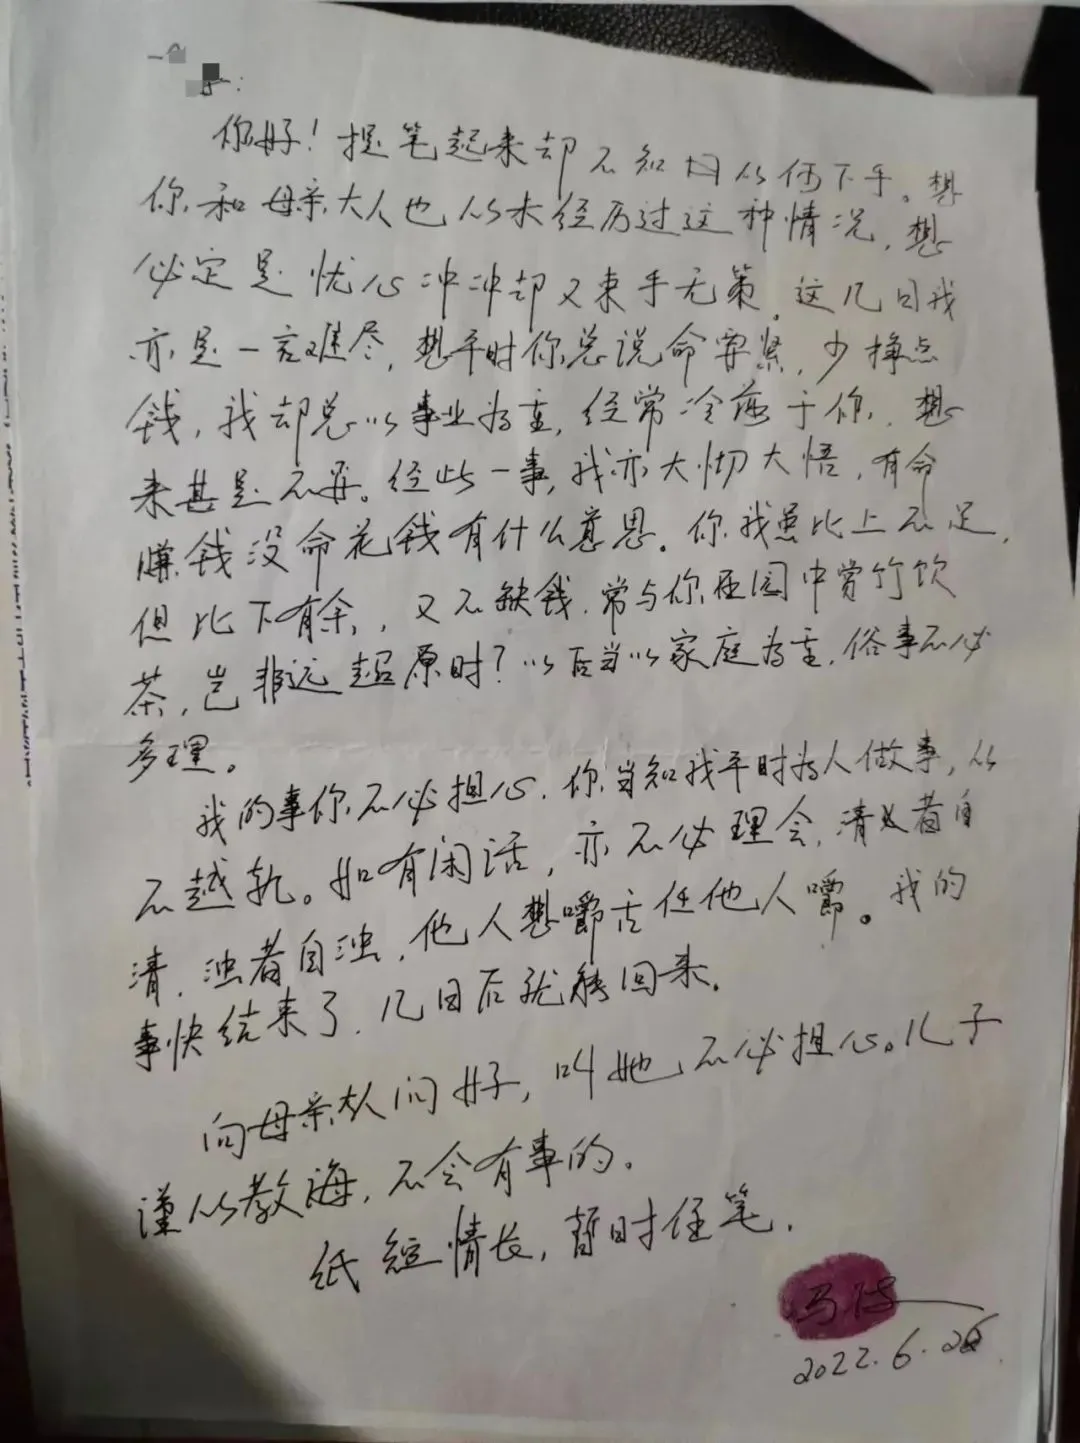 你好！提笔起来却不知从何下手。想
你和母亲大人也从未经历过这种情况，想
必定是忧心冲冲却又束手无策。这几日我
亦是一言难尽，想平时你总说命要紧，少挣点
钱，我却总以事业为重，经常冷落于你，想
来甚是不安。经此一事，我亦大彻大悟，有命
赚钱没命花钱有什么意思。你我虽比上不足，
但比下有余，又不缺钱，常与你在园中赏竹饮
茶，岂非远超原时？以后当以家庭为重，俗事不必
多理。
我的事你不必担心，你当知我平时为人做事，从
不越轨。如有闲话，亦不必理会，清者自
清，浊者自浊，他人想嚼舌任他人嚼。我的
事快结束了，几日后就能回来。
向母亲大人问好，叫她不必担心。儿子
谨从教诲，不会有事的。
纸短情长，暂时住笔。
2022.6.26